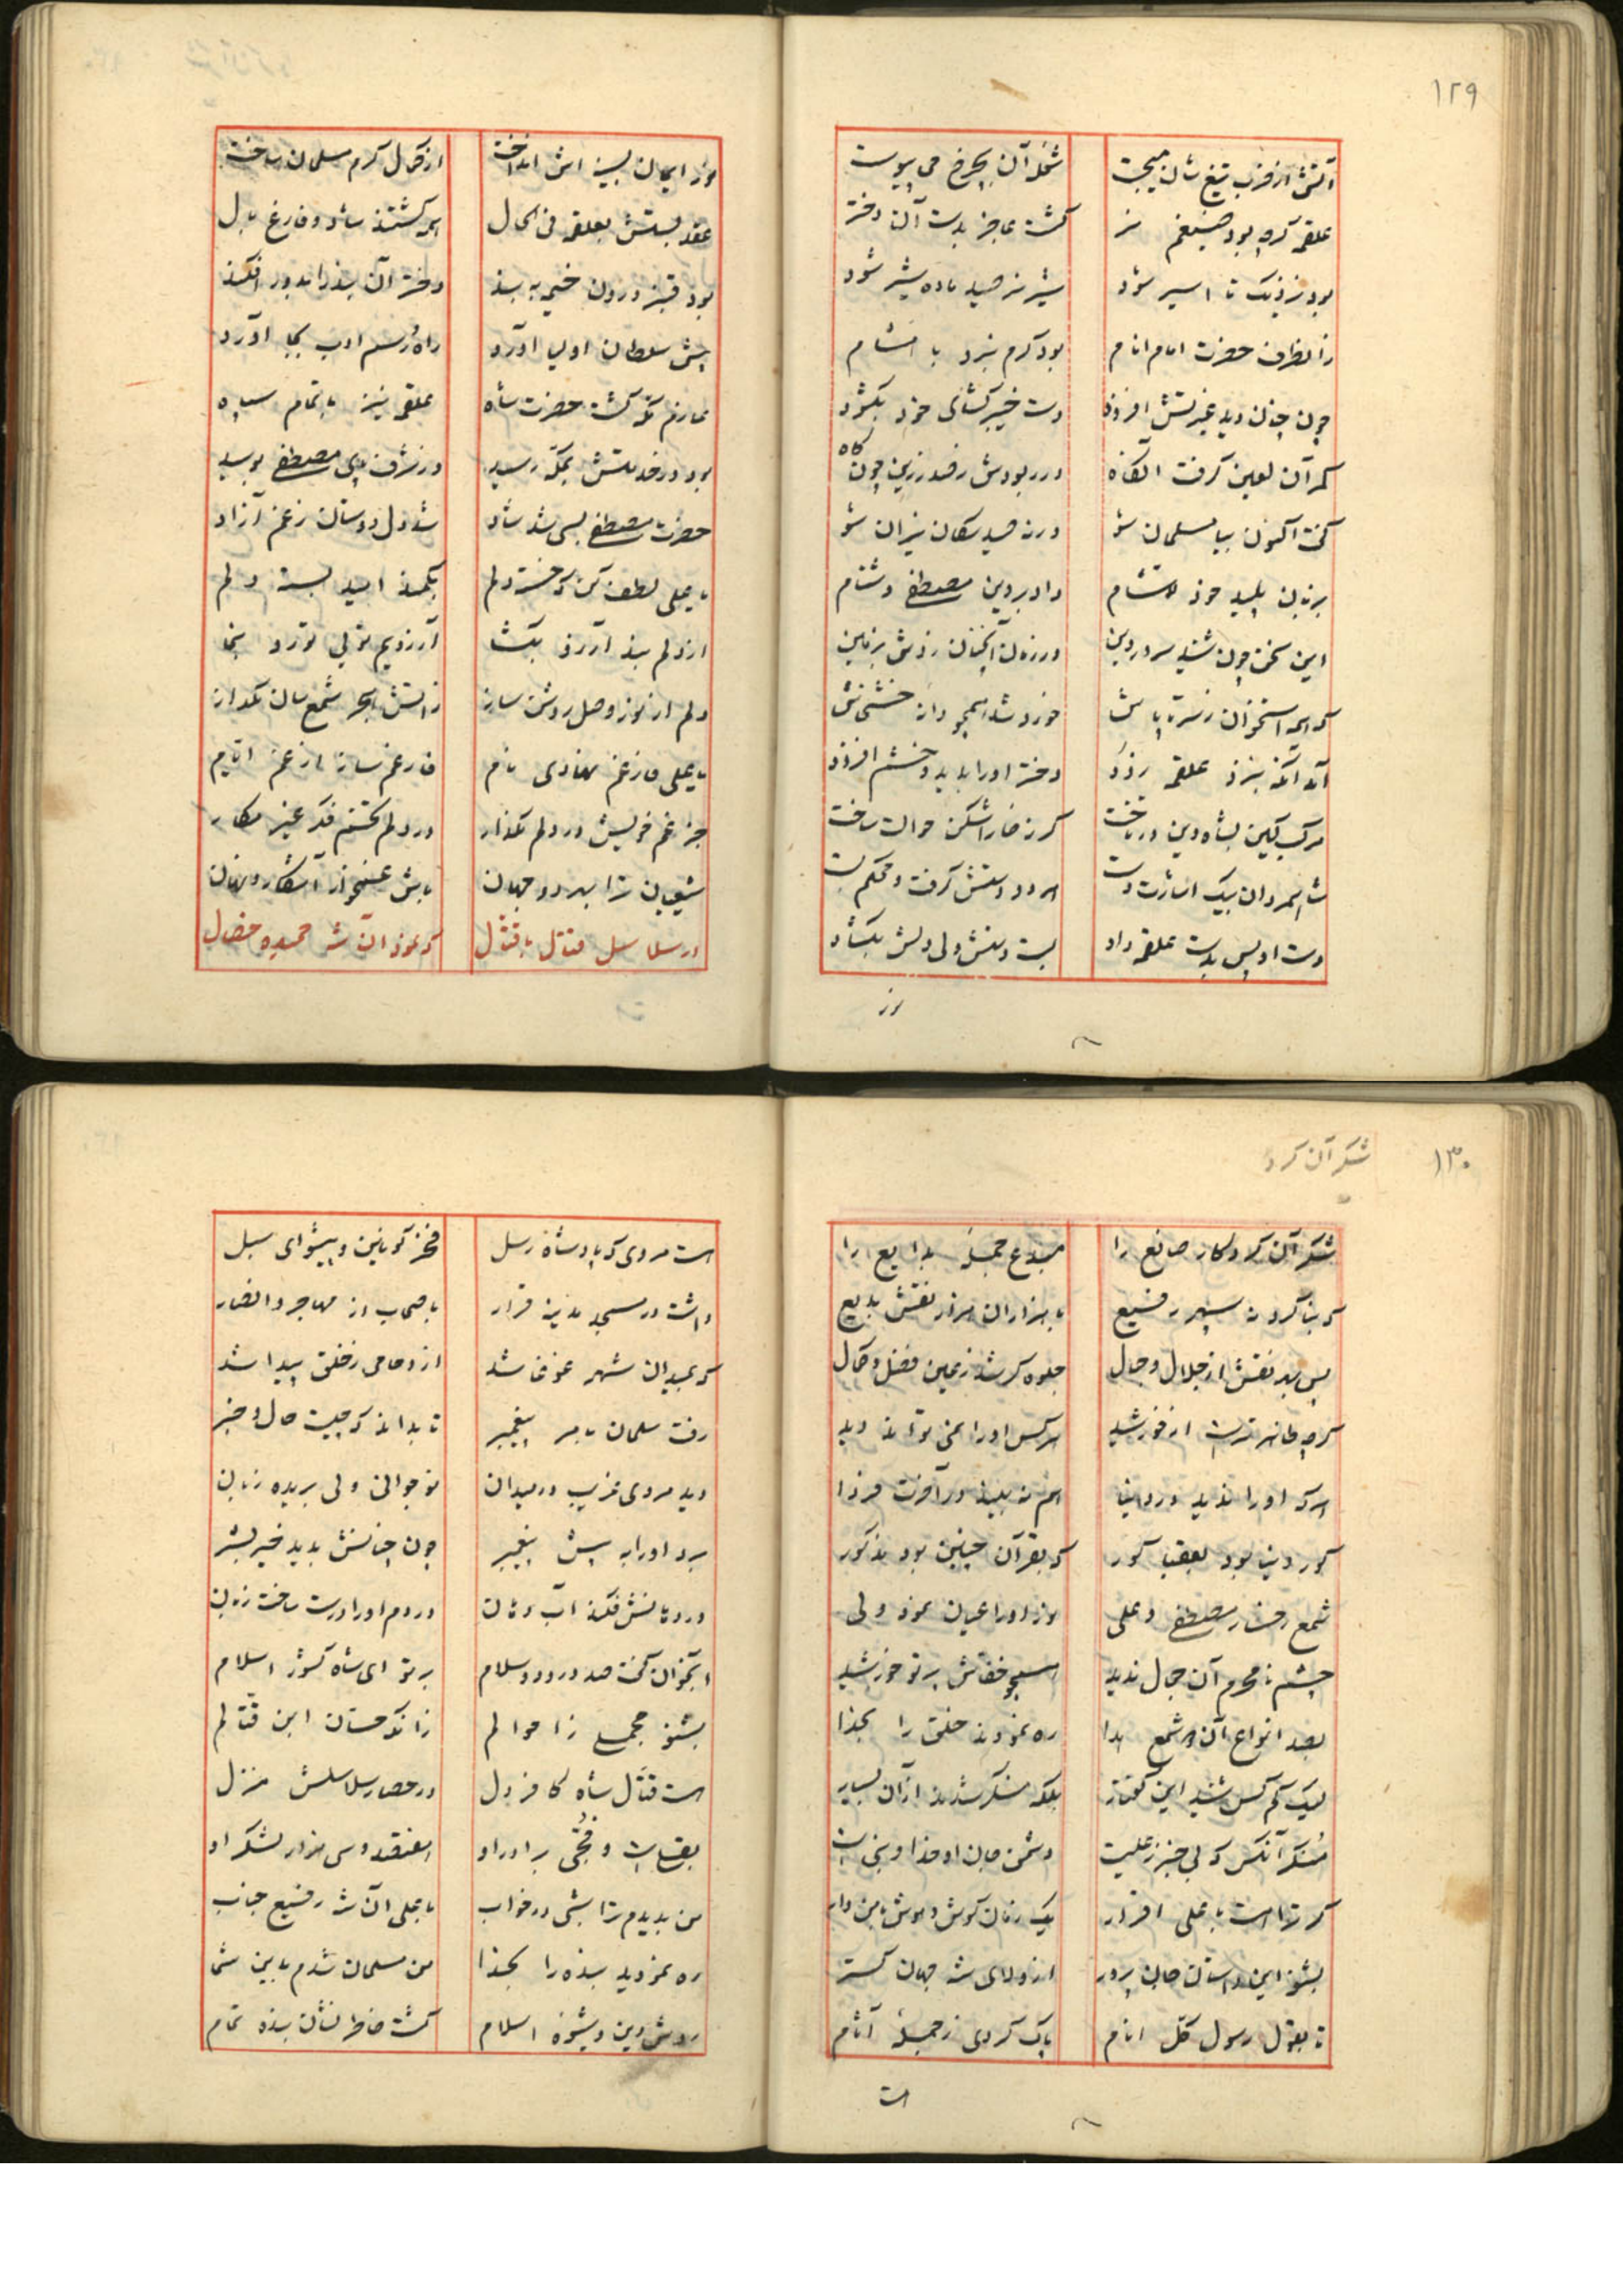 ۱۲۹
آتش از ضرب تیغ شان میجست شعله آن بچرخ می پیوست
علقمه کرچه بود ضیغم نر کشت عاجز بدست آن دختر
بود نزدیک تا اسیر شود شیر نر صید ماده شیر شود
زانطرف حضرت امام انام بود کرم نبرد با
چون چنان دید غیرتش افزود دست خیبر کشای خود بکشود
کمر آن لعین کرفت انکاه در ربودش ز صدر زین چون کاه
کفت اکنون بیا مسلمان شو ورنه صید سکان نیران شو
بر زبان پلید خود داد بر دین مصطفی دشنام
این سخن چون شنید سرور دین در زمان آنچنان زدش بزمین
که همه استخوان ز سر تا پاش خورد شد همچو دانه خشخاش
آمد آنکه بنزد علقمه زود دختر او را بدید و خشم افزود
مرکب کین بشاه دین در تاخت کرز خارا شکن حوالت ساخت
شاه مردان بیک اشارت دست هر دو دستش کرفت و محکم بست
دست او پس بدست علقمه داد بست دستش ولی دلش بکشاد
نور
نور ایمان بسینه اش انداخت از کمال کرم مسلمان ساخت
عقد بستش بعلقمه فی الحال همه کشتند شاد و فارغ بال
بود قنبر درون خیمه به بند دختر آن بند را بدور افکند
پیش سلطان اولیا آورد راه و رسم ادب بجا آورد
عازم مکه کشت حضرت شاه علقمه نیز با تمام سپاه
بود در خدمتش بمکه رسید در شرف پای مصطفی بوسید
حضرت مصطفی بسی شد شاد شد دل دوستان ز غم آزاد
یا علی لطف کن که خسته دلم بکمند امید بسته دلم
از دلم بند آرزو بکشا آرزویم توئی تو رو بنما
دلم از نور وصل روشن ساز ز آتش هجر شمع سان مکداز
یا علی فارغم نهادی نام فارغم ساز از غم ایام
جز غم خویش در دلم مکذار در دلم تخم فکر غیر مکار
شیعیان ترا بهر دو جهان باش غمخوار آشکار و نهان
در سلاسل قتال با قتال که نمود آن شه حمیده خصال
۱۳۰
شکر آن کرد
شکر آن کردکار صانع را مبدع جمله بدایع را
که بنا کرد نه سپهر رفیع با هزاران هزار نقش بدیع
پس بهر نقش از جلال و جمال جلوه کر شد ز عین فضل و کمال
کرچه ظاهر تر است از خورشید هر کس او را نمی تواند دید
هر که او را ندید در دنیا هم نه بیند در آخرت فردا
کور دنیا بود بعقبی کور که بقرآن چنین بود مذکور
شمع رخسار مصطفی و علی نور او را عیان نمود ولی
چشم نامحرم آن جمال ندید همچو خفاش پرتو خورشید
بصد انواع آن دو شمع هدا ره نمودند خلق را بخدا
لیک کم کس شنید این کفتار بلکه منکر شدند از آن بسیار
منکر آنکس که بی خبر ز علیست دشمن جان او خدا و نبی است
کر ترا هست با علی اقرار یک زمان کوش و هوش با من دار
بشنو این داستان جان پرور از ولای شه جهان کستر
تا بقول رسول کل انام پاک کردی ز جمله آثام
هست
هست مروی که پادشاه رسل فخر کونین و پیشوای سبل
داشت در مسجد مدینه قرار با صحاب از مهاجر و انصار
که بمیدان شهر غوغا شد ازدحامی ز خلق پیدا شد
رفت سلمان بامر پیغمبر تا بداند که چیست حال و خبر
دید مردی غریب در میدان نوجوانی ولی بریده زبان
برد او را به پیش پیغمبر چون چنانش بدید خیر بشر
در دهانش فکند آب دهان در دم او را درست ساخت زبان
آنجوان کفت صد درود و سلام بر تو ای شاه کشور اسلام
بشنو مجملی ز احوالم زانکه حسان ابن قتالم
هست قتال شاه کافر دل در حصار سلاسلش منزل
هفتصد و سی هزار لشکر او
من بدیدم ترا شبی در خواب با علی آن شه رفیع جناب
ره نمودید بنده را بخدا من مسلمان شدم بدین شما
روش دین و شیوه اسلام کشت خاطر نشان بنده تمام